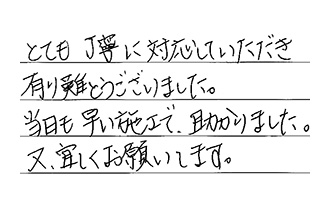 とても 丁寧に対応していただき
有り難とうございました。
当日も早い施工で、助かりました。
又、宜しくお願いします。